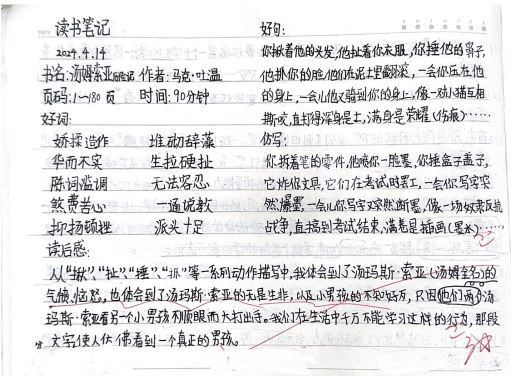 读书笔记
2024.4.14
书名:汤姆索亚历险记 作者:马克·吐温
页码:1~180页 时间:90分钟
好词:
娇揉造作 堆砌辞藻
华而不实 生拉硬扯
陈词滥调 无法容忍
煞费苦心 一通说教
抑扬顿挫 派头十足
好句:
你揪着他的头发,他扯着你衣服,你捶他的鼻子,
他抓你的脸,他们在泥土里翻滚,一会你压在他
的身上,一会儿他又骑到你的身上,像一对小猫互相
撕咬,直打得浑身是土,满身是荣耀(伤痕)……
仿写:
你拆着笔的零件,他喷你一脸墨,你捶盒子盖子,
它炸你文具,它们在考试时罢工,一会你写字突
然爆墨,一会儿你写字突然断墨,像一场效果反抗
战争,直搞到考试结束,满卷是插画(墨水)……
读后感:
从“揪”“扯”“捶”“抓”等一系列动作描写中,我体会到了汤玛斯·索亚(汤姆全名)的
气愤、恼怒,也体会到了汤玛斯·索亚的无是生非,以及小男孩的不知好歹,只因他们两
玛斯·索亚看另一个小男孩不顺眼而大打出手。我们在生活中千万不能学习这样的行为,那段
文字使人仿佛看到一个真正的男孩。